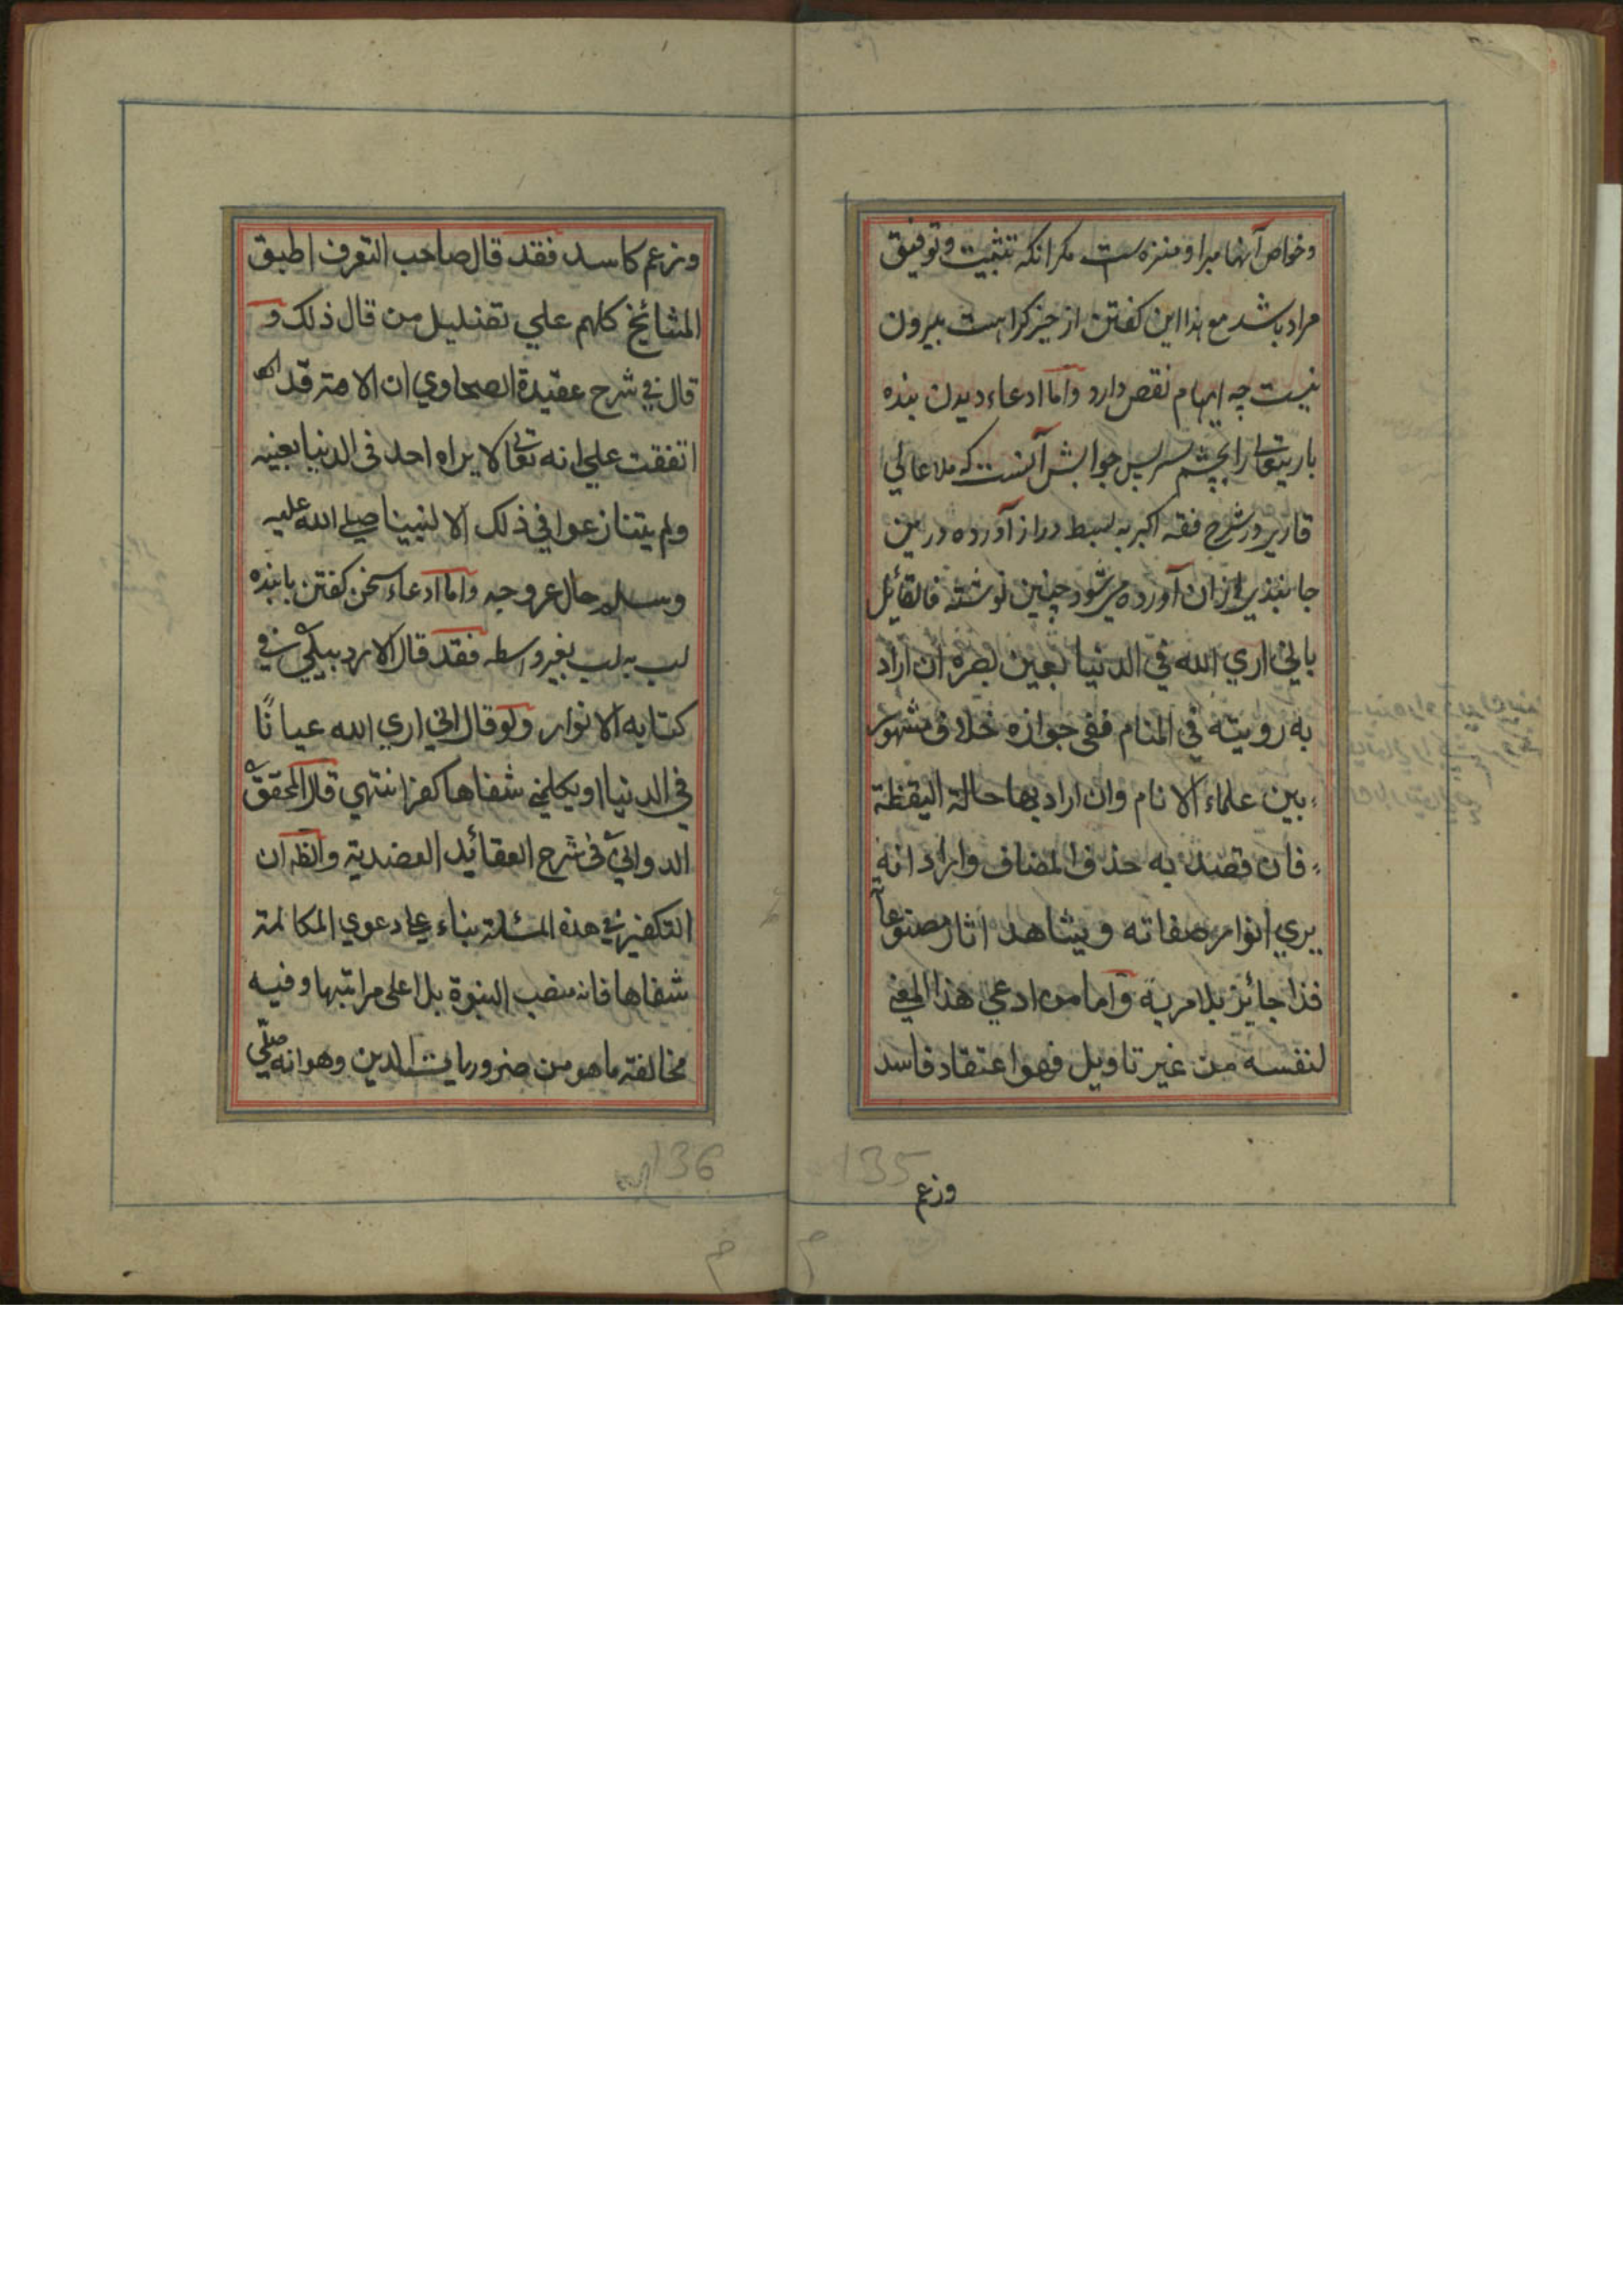 وخواص آنها مبرا و منزه است مكر انكه تثبيت وتوفيق
مراد باشد مع هذا اين كفتن از حيز كراهت بيرون
نيست چه ايهام نقص دارد و اما ادعاء ديدن بنده
باريتعالى را بچشم سر پس جوابش آنست كه ملا عالي
قاري در شرح فقه اكبر به بسط دراز آورده درين
جا نبذي ازان آورده ميشود چنين نوشته فالقائل
باني اري الله في الدنيا بعين بصره ان اراد
به رويته في المنام ففي جوازه خلاف مشهور
بين علماء الانام وان اراد بها حالة اليقظة
فان قصد به حذف المضاف واراد انه
يري انوار صفاته ويشاهد اثار مصنوعاته
فذا جائز بلا مرية واما من ادعي هذا المعني
لنفسه من غير تاويل فهو اعتقاد فاسد
135
وزعم
وزعم كاسد فقد قال صاحب التعرف اطبق
المشائخ كلهم علي تضليل من قال ذلك و
قال في شرح عقيدة الصحاوي ان الامة قد
اتفقت علي انه تعالى لا يراه احد في الدنيا بعينه
ولم يتنازعوا في ذلك الا لنبينا صلي الله عليه
وسلم حال عروجه واما ادعاء سخن كفتن بابنده
لب به لب بغير واسطه فقد قال الاردبيلي في
كتابه الانوار ولو قال اني اري الله عيانًا
في الدنيا او يكلمني شفاها كفر انتهي قال المحقق
الدواني في شرح العقائد العضدية والظ ان
التكفير في هذه المسئلة بناء علي دعوي المكالمة
شفاها فانه منصب النبوة بل اعلى مراتبها وفيه
مخالفة ما هو من ضروريات الدين وهو انه صلّي
136